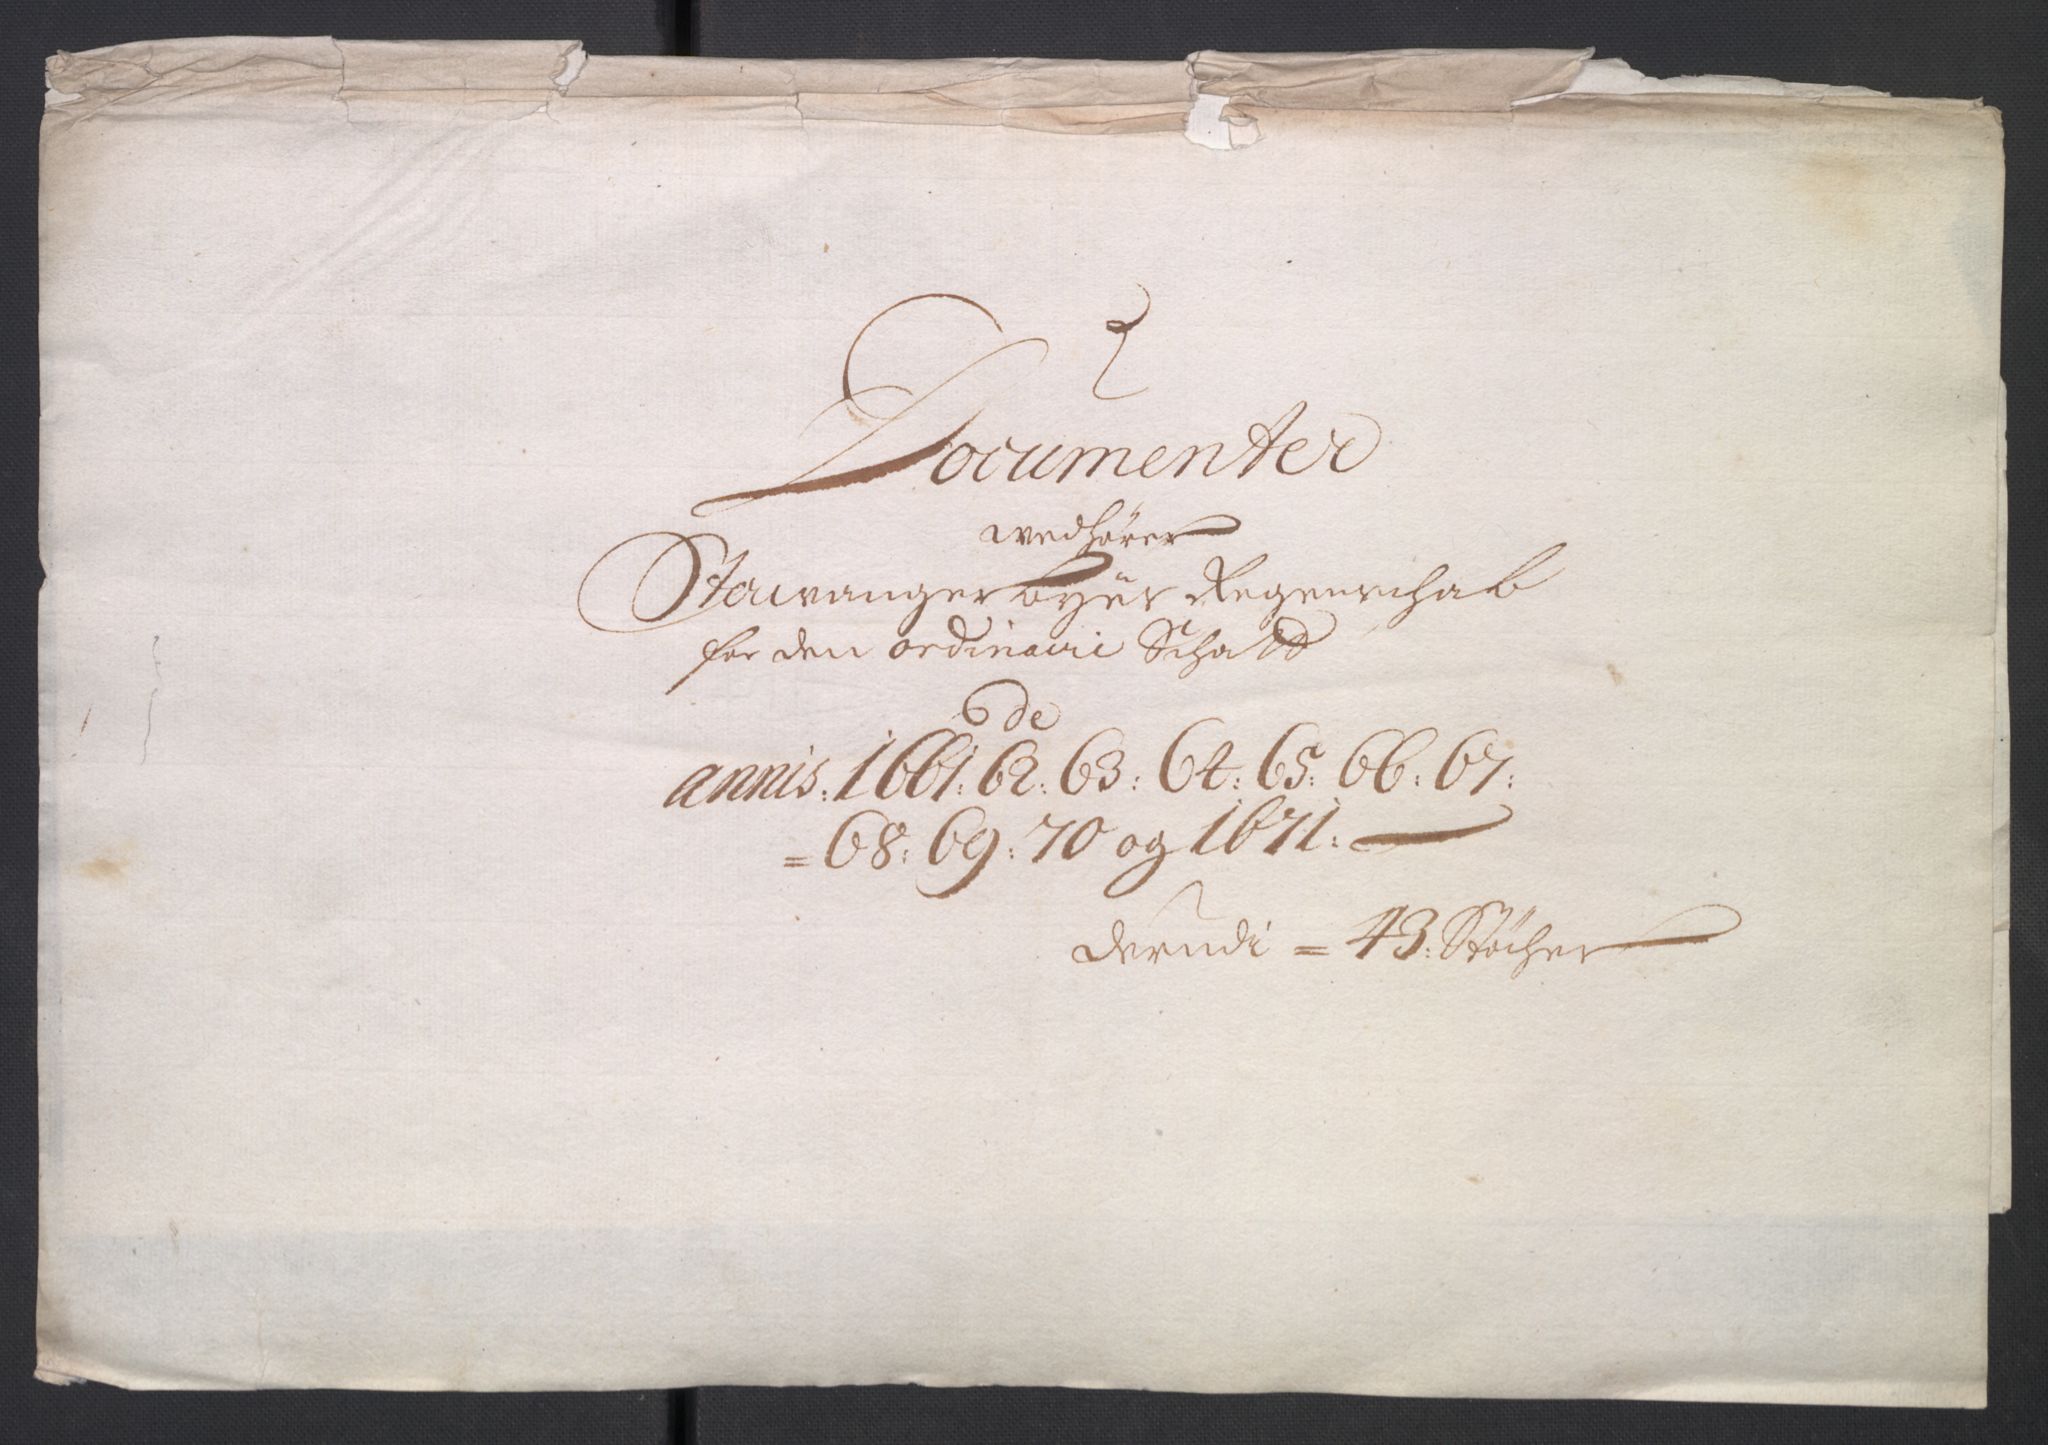 Documenter
wedhörer
Stawanger byes Regenschab
for den ordinairi Schatt
de
annis: 1661: 62: 63: 64: 65: 66: 67:
= 68: 69: 70 og 1671:
derudi = 43: Stöcher